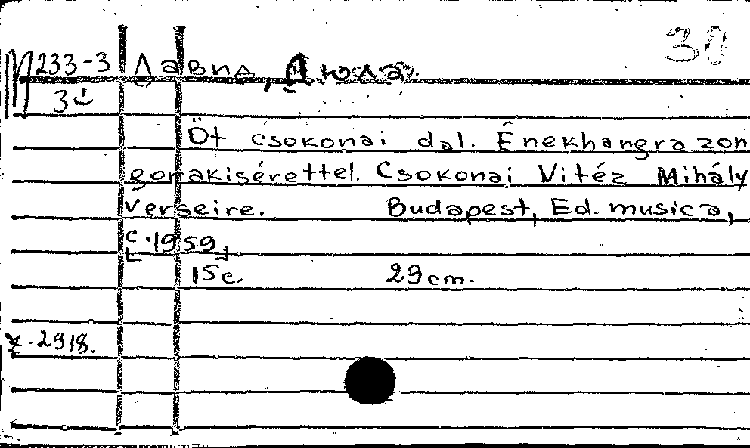 30
П 233-3 Давид, Дюла.
3
Öt csokonai dal. Énekhangra zon
gorakisérettel. Csokonai Vitéz Mihály
verseire. Budapest, Ed. musica,
c.1959
15c. 29cm.
x-2918.